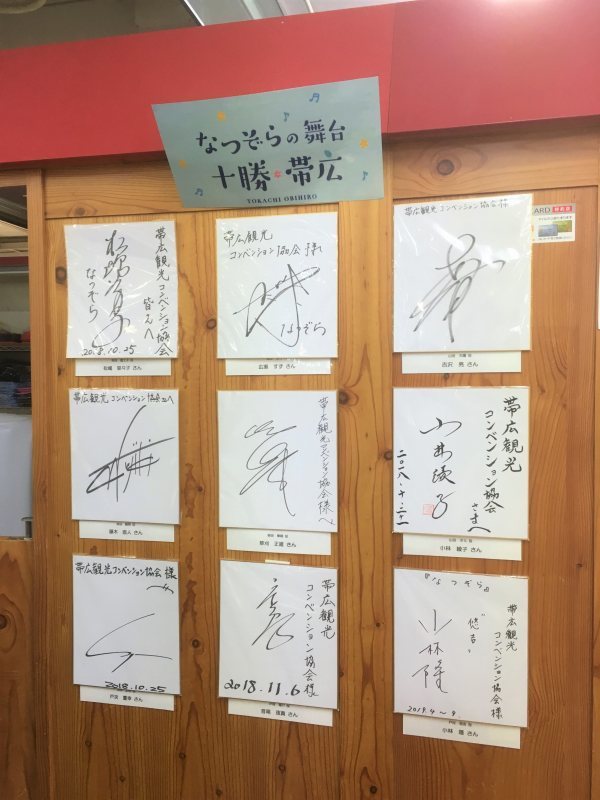 なつぞらの舞台
十勝 帯広
TOKACHI OBIHIRO
帯広観光
コンベンション協会
皆さんへ
なつぞら
2018.10.25
松嶋 菜々子 さん
帯広観光
コンベンション協会 様へ
なつぞら
広瀬 すず さん
帯広観光コンベンション協会様
吉沢 亮 さん
ARD
帯広観光コンベンション協会さんへ
藤木 直人 さん
帯広観光コンベンション協会様へ
草刈 正雄 さん
帯広観光
コンベンション協会
さまへ
小林綾子
二〇一八・十・三一
小林 綾子 さん
帯広観光コンベンション協会 様へ
2018.10.25
戸次 重幸 さん
帯広観光
コンベンション協会様
2018.11.6
音尾 琢真 さん
『なつぞら』
帯広観光
コンベンション協会様
"悠吉"
小林隆
2019.4〜9
小林 隆 さん